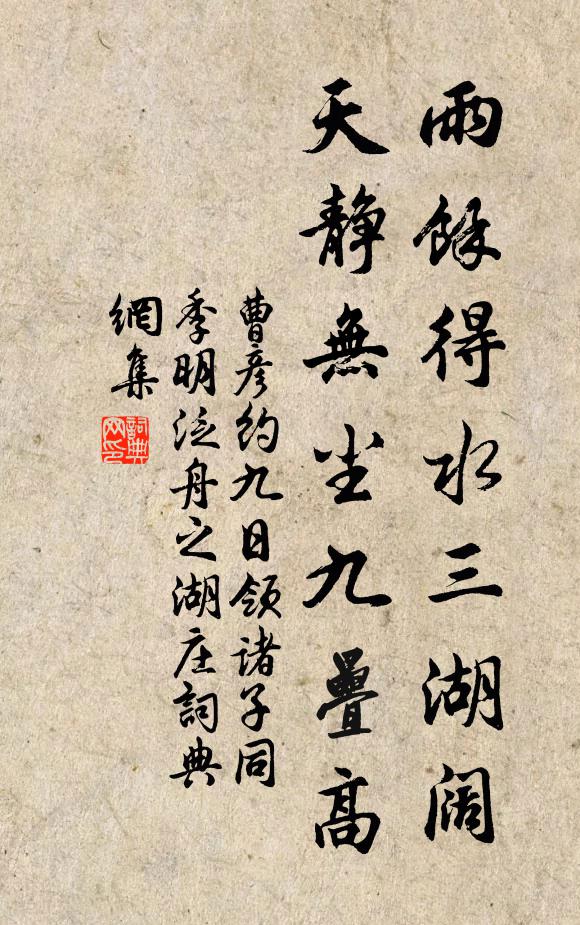 雨餘得水三湖阔
天静無尘九疊高
曹彦约九日领诸子同
季明泛舟之湖庄詞典
網集
詞典
网印